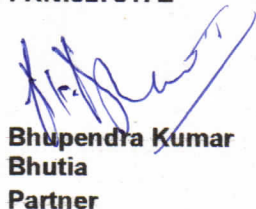 Bhupendra Kumar
Bhutia
Partner